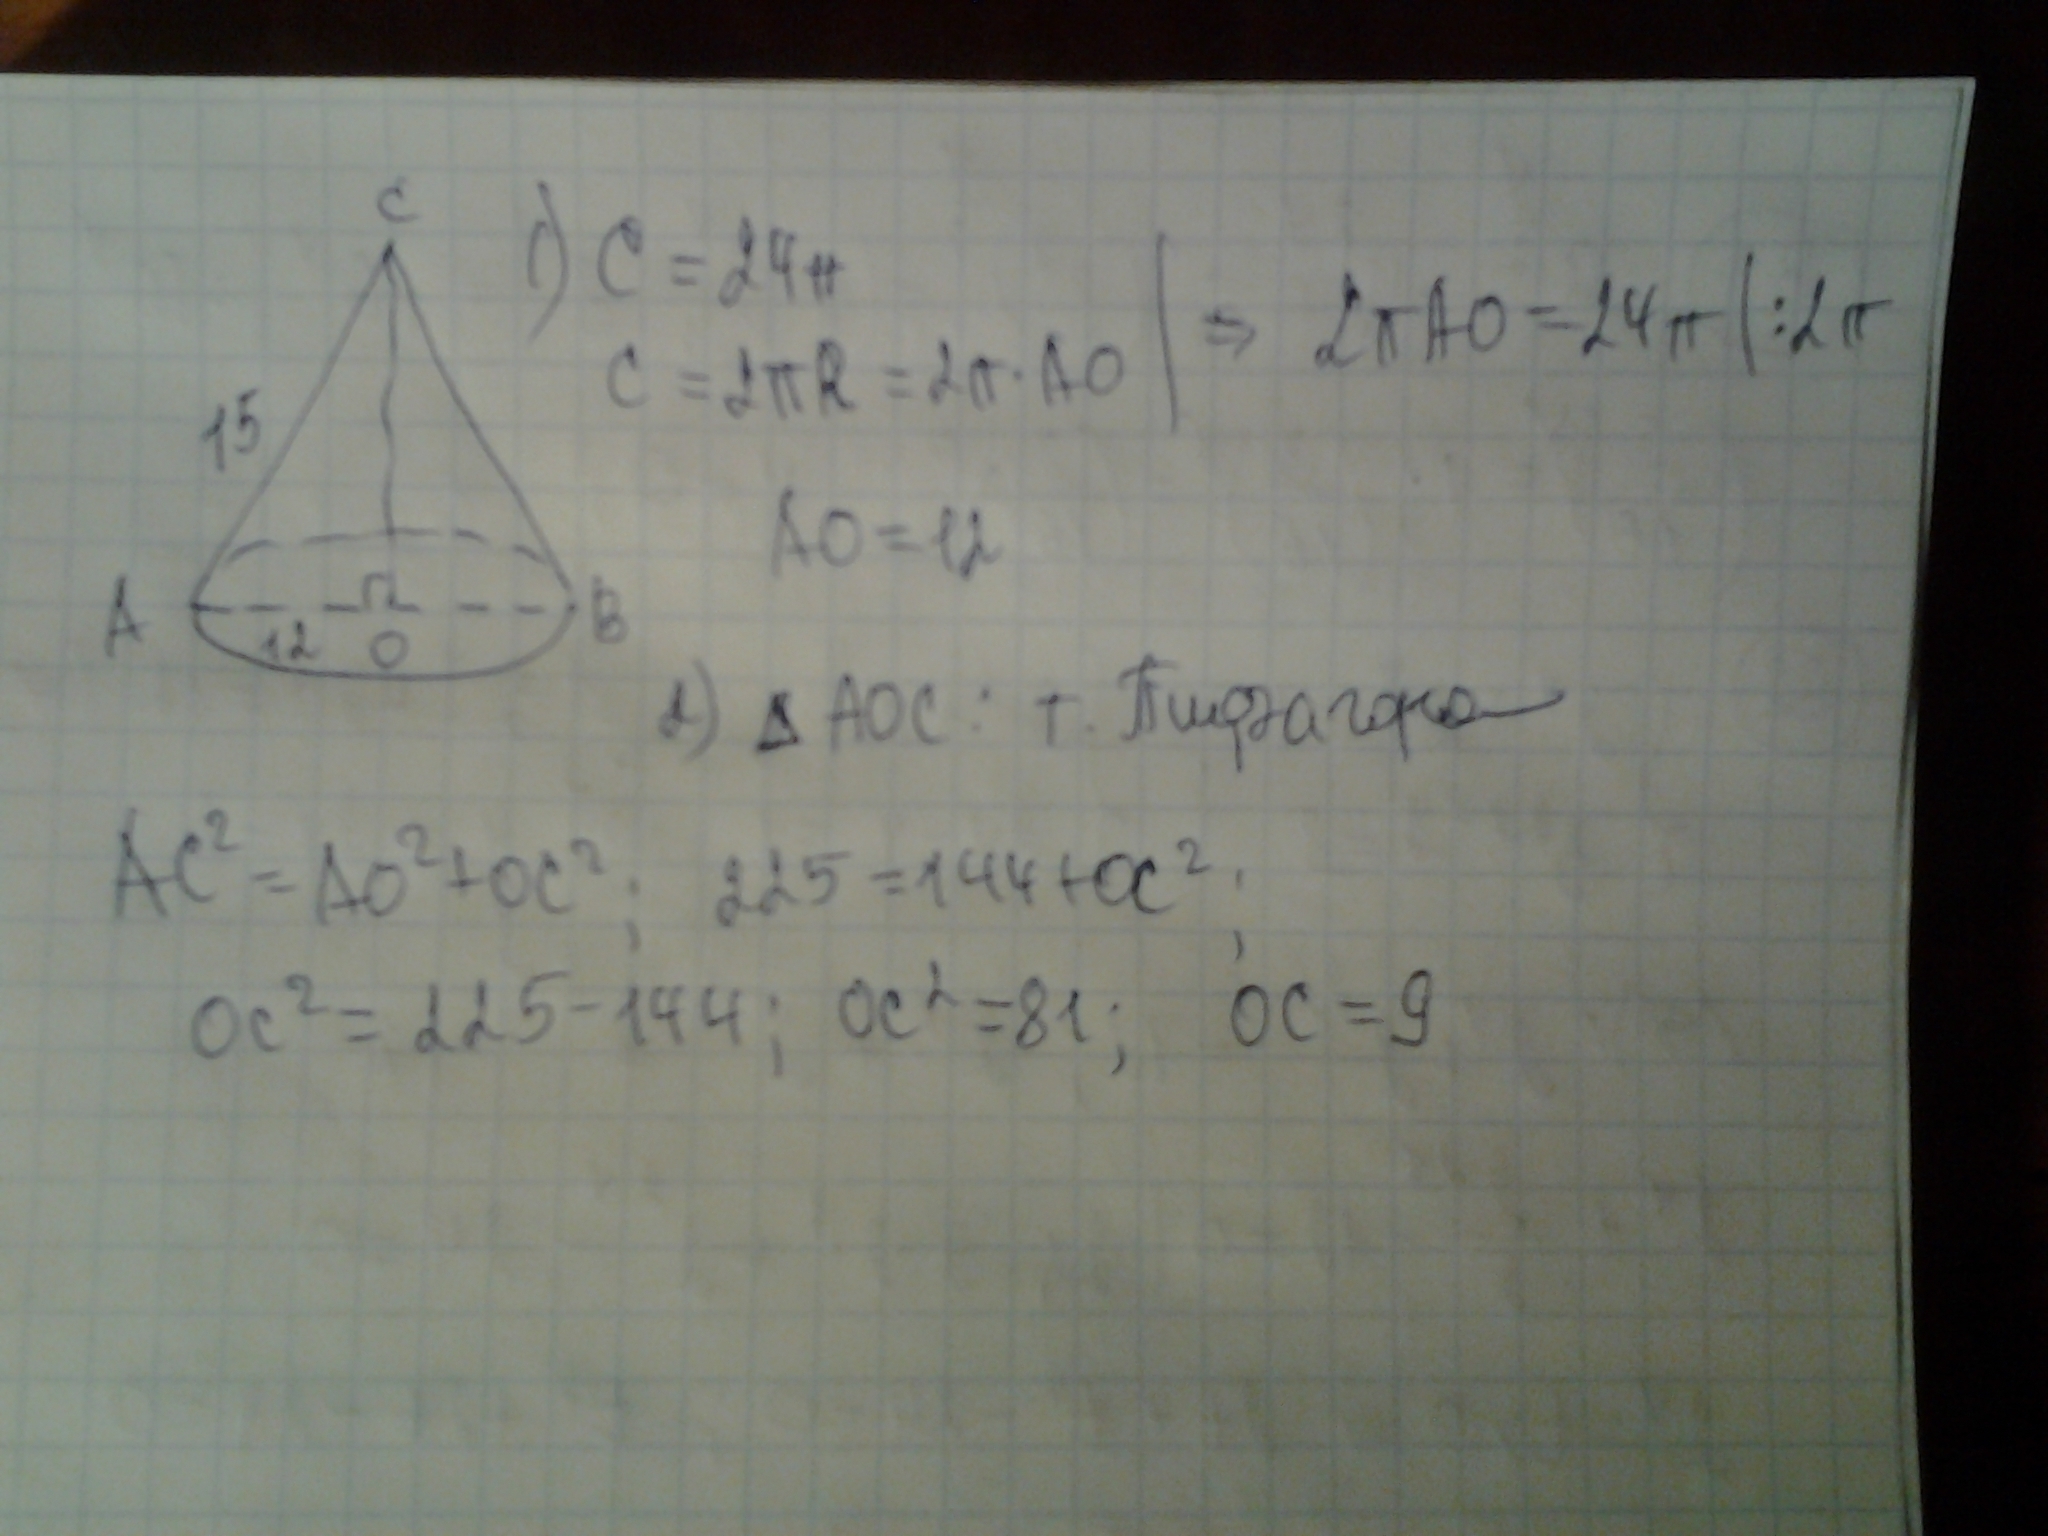 C
15
A
12
O
B
1) C = 24π
C = 2πR = 2π·AO | ⇒ 2πAO = 24π |:2π
AO = 12
2) Δ AOC: т. Пифагора
AC² = AO² + OC²; 225 = 144 + OC²;
OC² = 225 - 144; OC² = 81; OC = 9